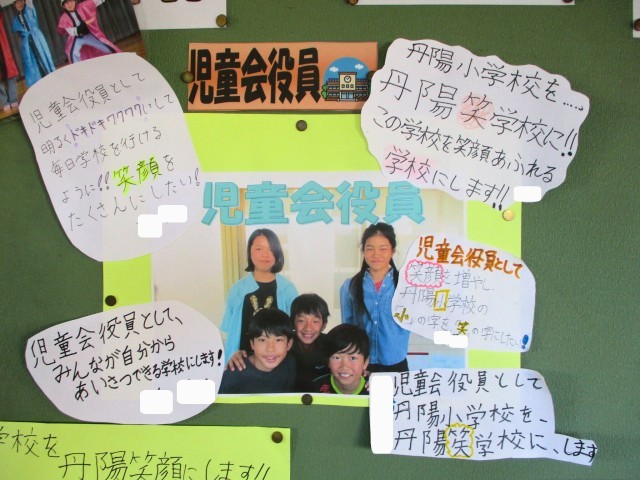 児童会役員
児童会役員として
明るくドキドキワクワクして
毎日学校を行ける
ように!!笑顔を
たくさんにしたい!
丹陽小学校を.....
丹陽笑学校に!!
この学校を笑顔あふれる
学校にします!!
児童会役員
児童会役員として
笑顔を増やし、
丹陽小学校の
"小"の字を"笑"の字にしたい!
児童会役員として、
みんなが自分から
あいさつできる学校にします!
児童会役員として
丹陽小学校を、
丹陽笑学校に、します
学校を
丹陽笑顔にします!!